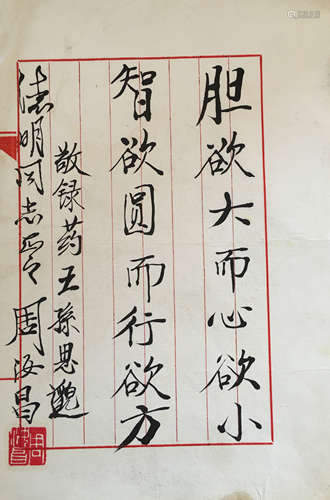 胆欲大而心欲小
智欲圆而行欲方
敬录药王孙思邈
德明同志正之
周汝昌
周汝昌